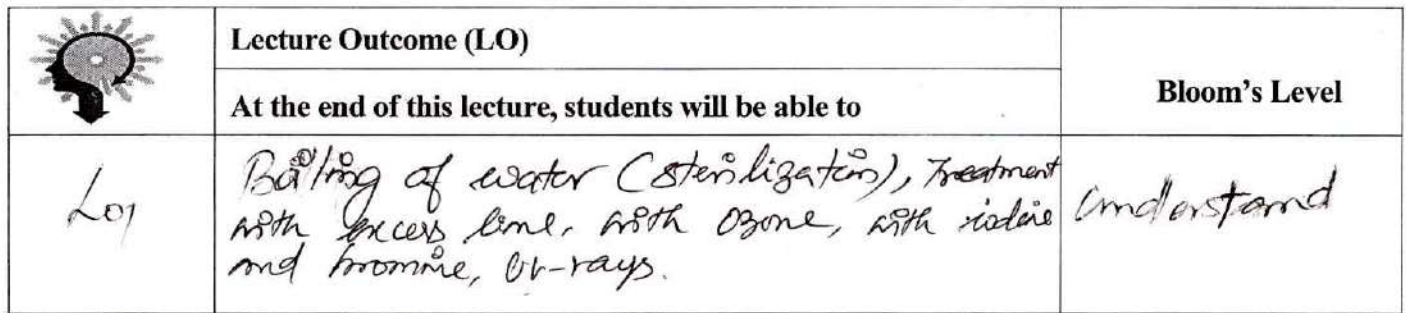 Lecture Outcome (LO)
At the end of this lecture, students will be able to
Bloom's Level
LO1
Boiling of water (sterilization), Treatment
with excess lime, with ozone, with iodine
and bromine, UV-rays.
Understand